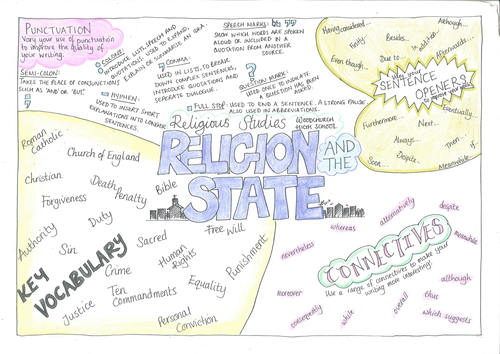 PUNCTUATION
Vary your use of punctuation
to improve the quality of
your writing.
SEMI-COLON:
TAKES THE PLACE OF CONJUNCTIONS
SUCH AS 'AND' OR 'BUT'.
COLON:
INTRODUCE LISTS, SPEECH AND
QUOTATIONS. USED TO EXPAND,
EXPLAIN OR SUMMARISE AN IDEA.
HYPHEN:
USED TO INSERT SHORT
EXPLANATIONS INTO LONGER
SENTENCES.
COMMA:
USED IN LISTS, TO BREAK
DOWN COMPLEX SENTENCES,
INTRODUCE QUOTATIONS AND
SEPERATE DIALOGUE.
SPEECH MARKS:
SHOW WHICH WORDS ARE SPOKEN
ALOUD OR INCLUDED IN A
QUOTATION FROM ANOTHER
SOURCE.
QUESTION MARK:
USED ONCE TO INDICATE
A QUESTION HAS BEEN
ASKED.
FULL STOP: USED TO END A SENTENCE. A STRONG PAUSE
ALSO USED IN ABBREVIATIONS.
Having considered...
Although...
Firstly..
Besides..
In addition..
Even though..
Due to...
Afterwards...
SENTENCE
OPENERS
Furthermore..
Next..
Eventually..
Always...
Then
If
Soon...
Despite..
Meanwhile
Religious Studies
WOODCHURCH
HIGH SCHOOL
RELIGION
AND
THE
STATE
Roman
Catholic
Church of England
Christian
Death
Penalty
Bible
Forgiveness
Duty
Authority
Sin
Sacred
Free Will
Human
Rights
Punishment
Crime
Equality
KEY
VOCABULARY
Ten
Commandments
Justice
Personal
Conviction
whereas
alternatively
despite
meanwhile
nevertheless
CONNECTIVES
Use a range of connectives to make your
writing more interesting!
although
moreover
consequently
while
overall
thus
which suggests